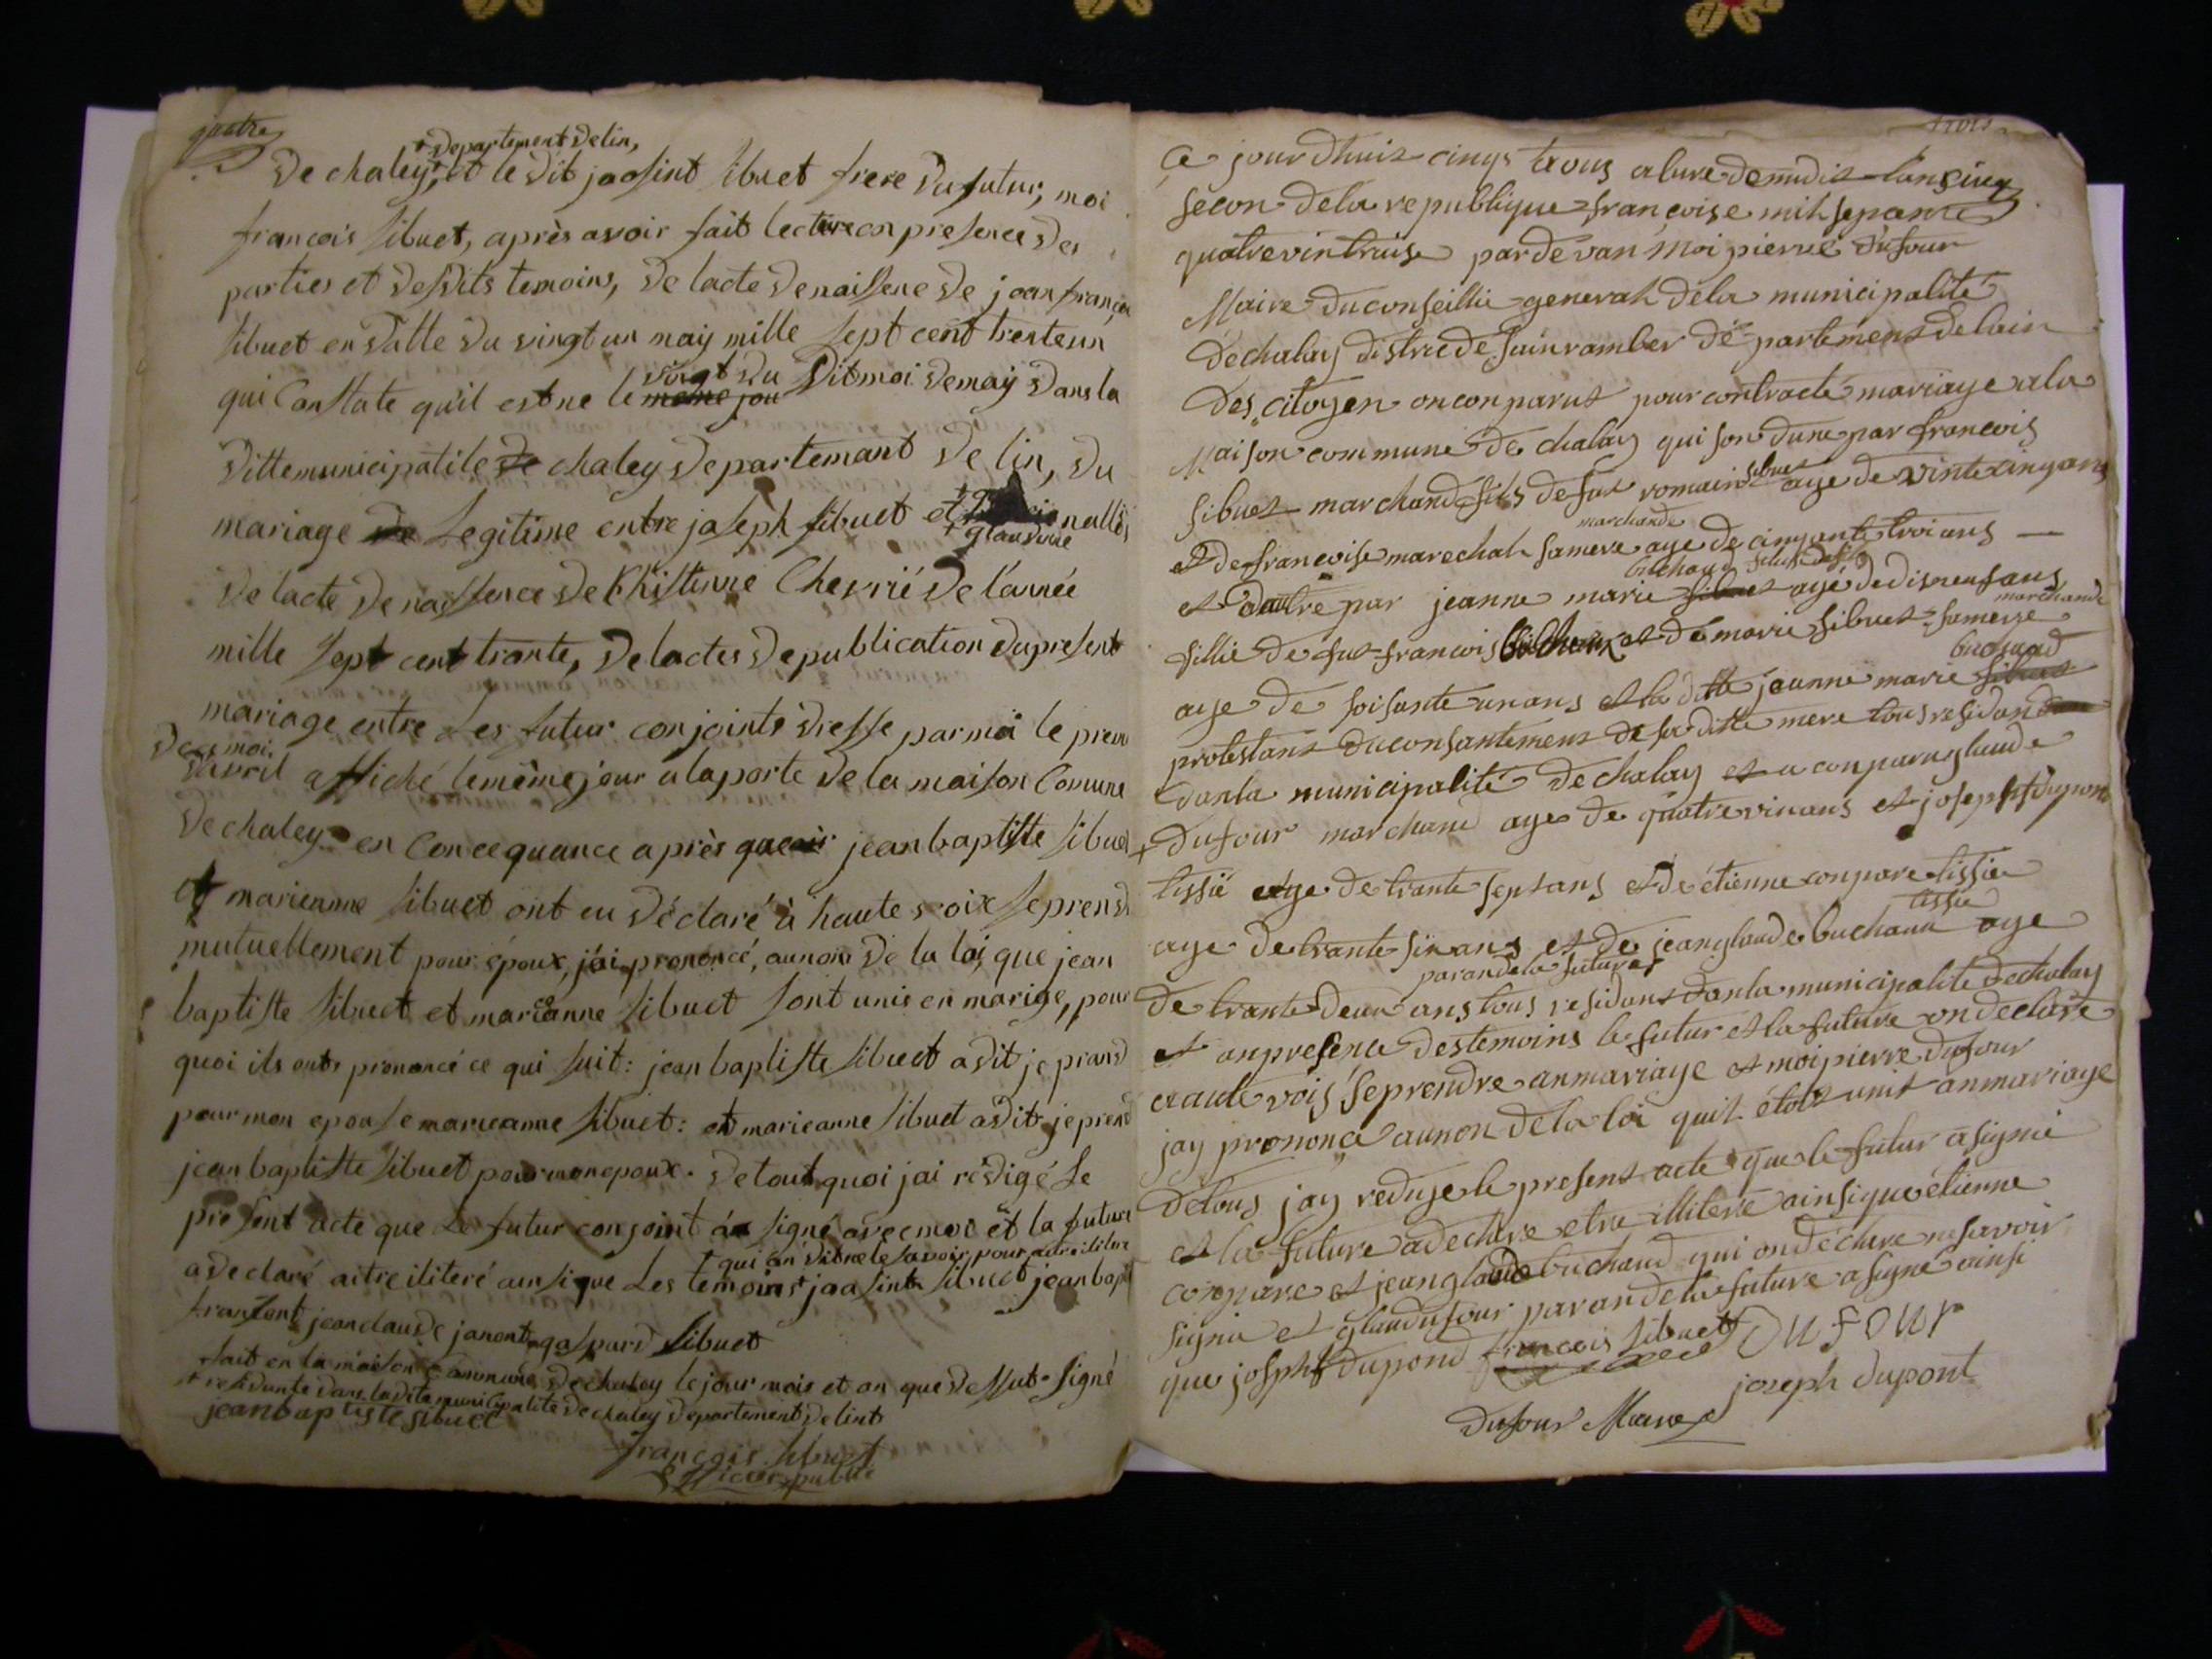 quatre
+ departement delin,
De chaley, + et le dit jaosint sibuet frere du futur, moi
francois sibuet, après avoir fait lecture en presence des
parties et desdits temoins, de lacte denaissene de jean françois
sibuet en datte du vingt un may mille sept cent trente un
vingt du
qui Constate qu'il est ne le meme jou ditmoi demay dans la
ditte municipalite de chaley departemant de lin, du
mariage de Legitime entre joseph sibuet et
glaudine
de lacte de naissence de Christinne Chevrié de l'année
mille sept cent trante, de lactes de publication du present
mariage entre Les futur conjoints dresse par moi le
de moi
davril affiché lemême jour a laporte de la maison Comune
De chaley en Concequance après jean baptiste sibuet
et marieanne sibuet ont eu déclaré à haute voix se prendre
mutuellement pour époux, j'ai prononcé, aunom de la loi, que jean
baptiste sibuet et marieanne sibuet sont unis en marige, pour
quoi ils ont prononcé ce qui suit: jean baptiste sibuet a dit je prand
pour mon epouse marieanne sibuet: et marieanne sibuet a dit je prend
jean baptiste sibuet pour mon epoux. De tout quoi jai rédigé Le
present acte que Le futur conjoint a signé avec moi et la future
+ qui on dit ne le savoir pour
a declaré aitre iliteré ainsi que Les temoins + jaosint sibuet jean
jean claude janont gaspard sibuet
fait en la maison commune de chaley le jour mois et an que dessut signé
+ residante dans ladite municipalite de chaley departement de lint
jean baptiste sibuet
françois sibuet
officier public
trois
Ce jour dhuit cinqs a lure demidit lan
secon dela republique françoise mil sepante
quatrevintraise pardevan moi pierre dufour
Maire du conseillie general dela municipalité
dechalay districde sainramber departement delain
des citoyen onconparut pour contracté mariage ala
Maison commune de chalay qui son dune par francois
sibuet
sibuet marchand fils de fut romain age de vintecinq ans
marchande
et de francoise marechal samere age de cinquante troi ans —
buchaud
et dautre par jeanne marie sibuet agé de disneuf ans
marchande
fillie de fut francois buchaux et de marie sibuet samerre
buchaud
age de soisante un ans et la ditte jeanne marie sibuet
protestant du consantement de sa ditte mere tous residan
danla municipalité de chalay et a conparu glaude
+ dufour marchand age de quatrevinans et joseph dupont
tissié age de trante sept ans et de étienne conpare tissie
tissie
age de trante six ans et de jeanglaude buchaux age
paran dela future +
de trante deux ans tous residant danla municipalite dechalay
et anpresence des temoins le futur et la future on declare
a aute vois seprendre anmariage et moi pierre dufour
jay prononçe au non de la loi quil étoit unit anmariage
detous jay reduge le present acte que le futur a signié
et la future a declare etre illitere ainsi que étienne
conpare et jeanglaude buchaud qui on declare ne savoir
signié et glaudufour paran dela future a signé ainsi
que joseph dupond francois sibuet DUFOUR
joseph dupont
dufour Maire